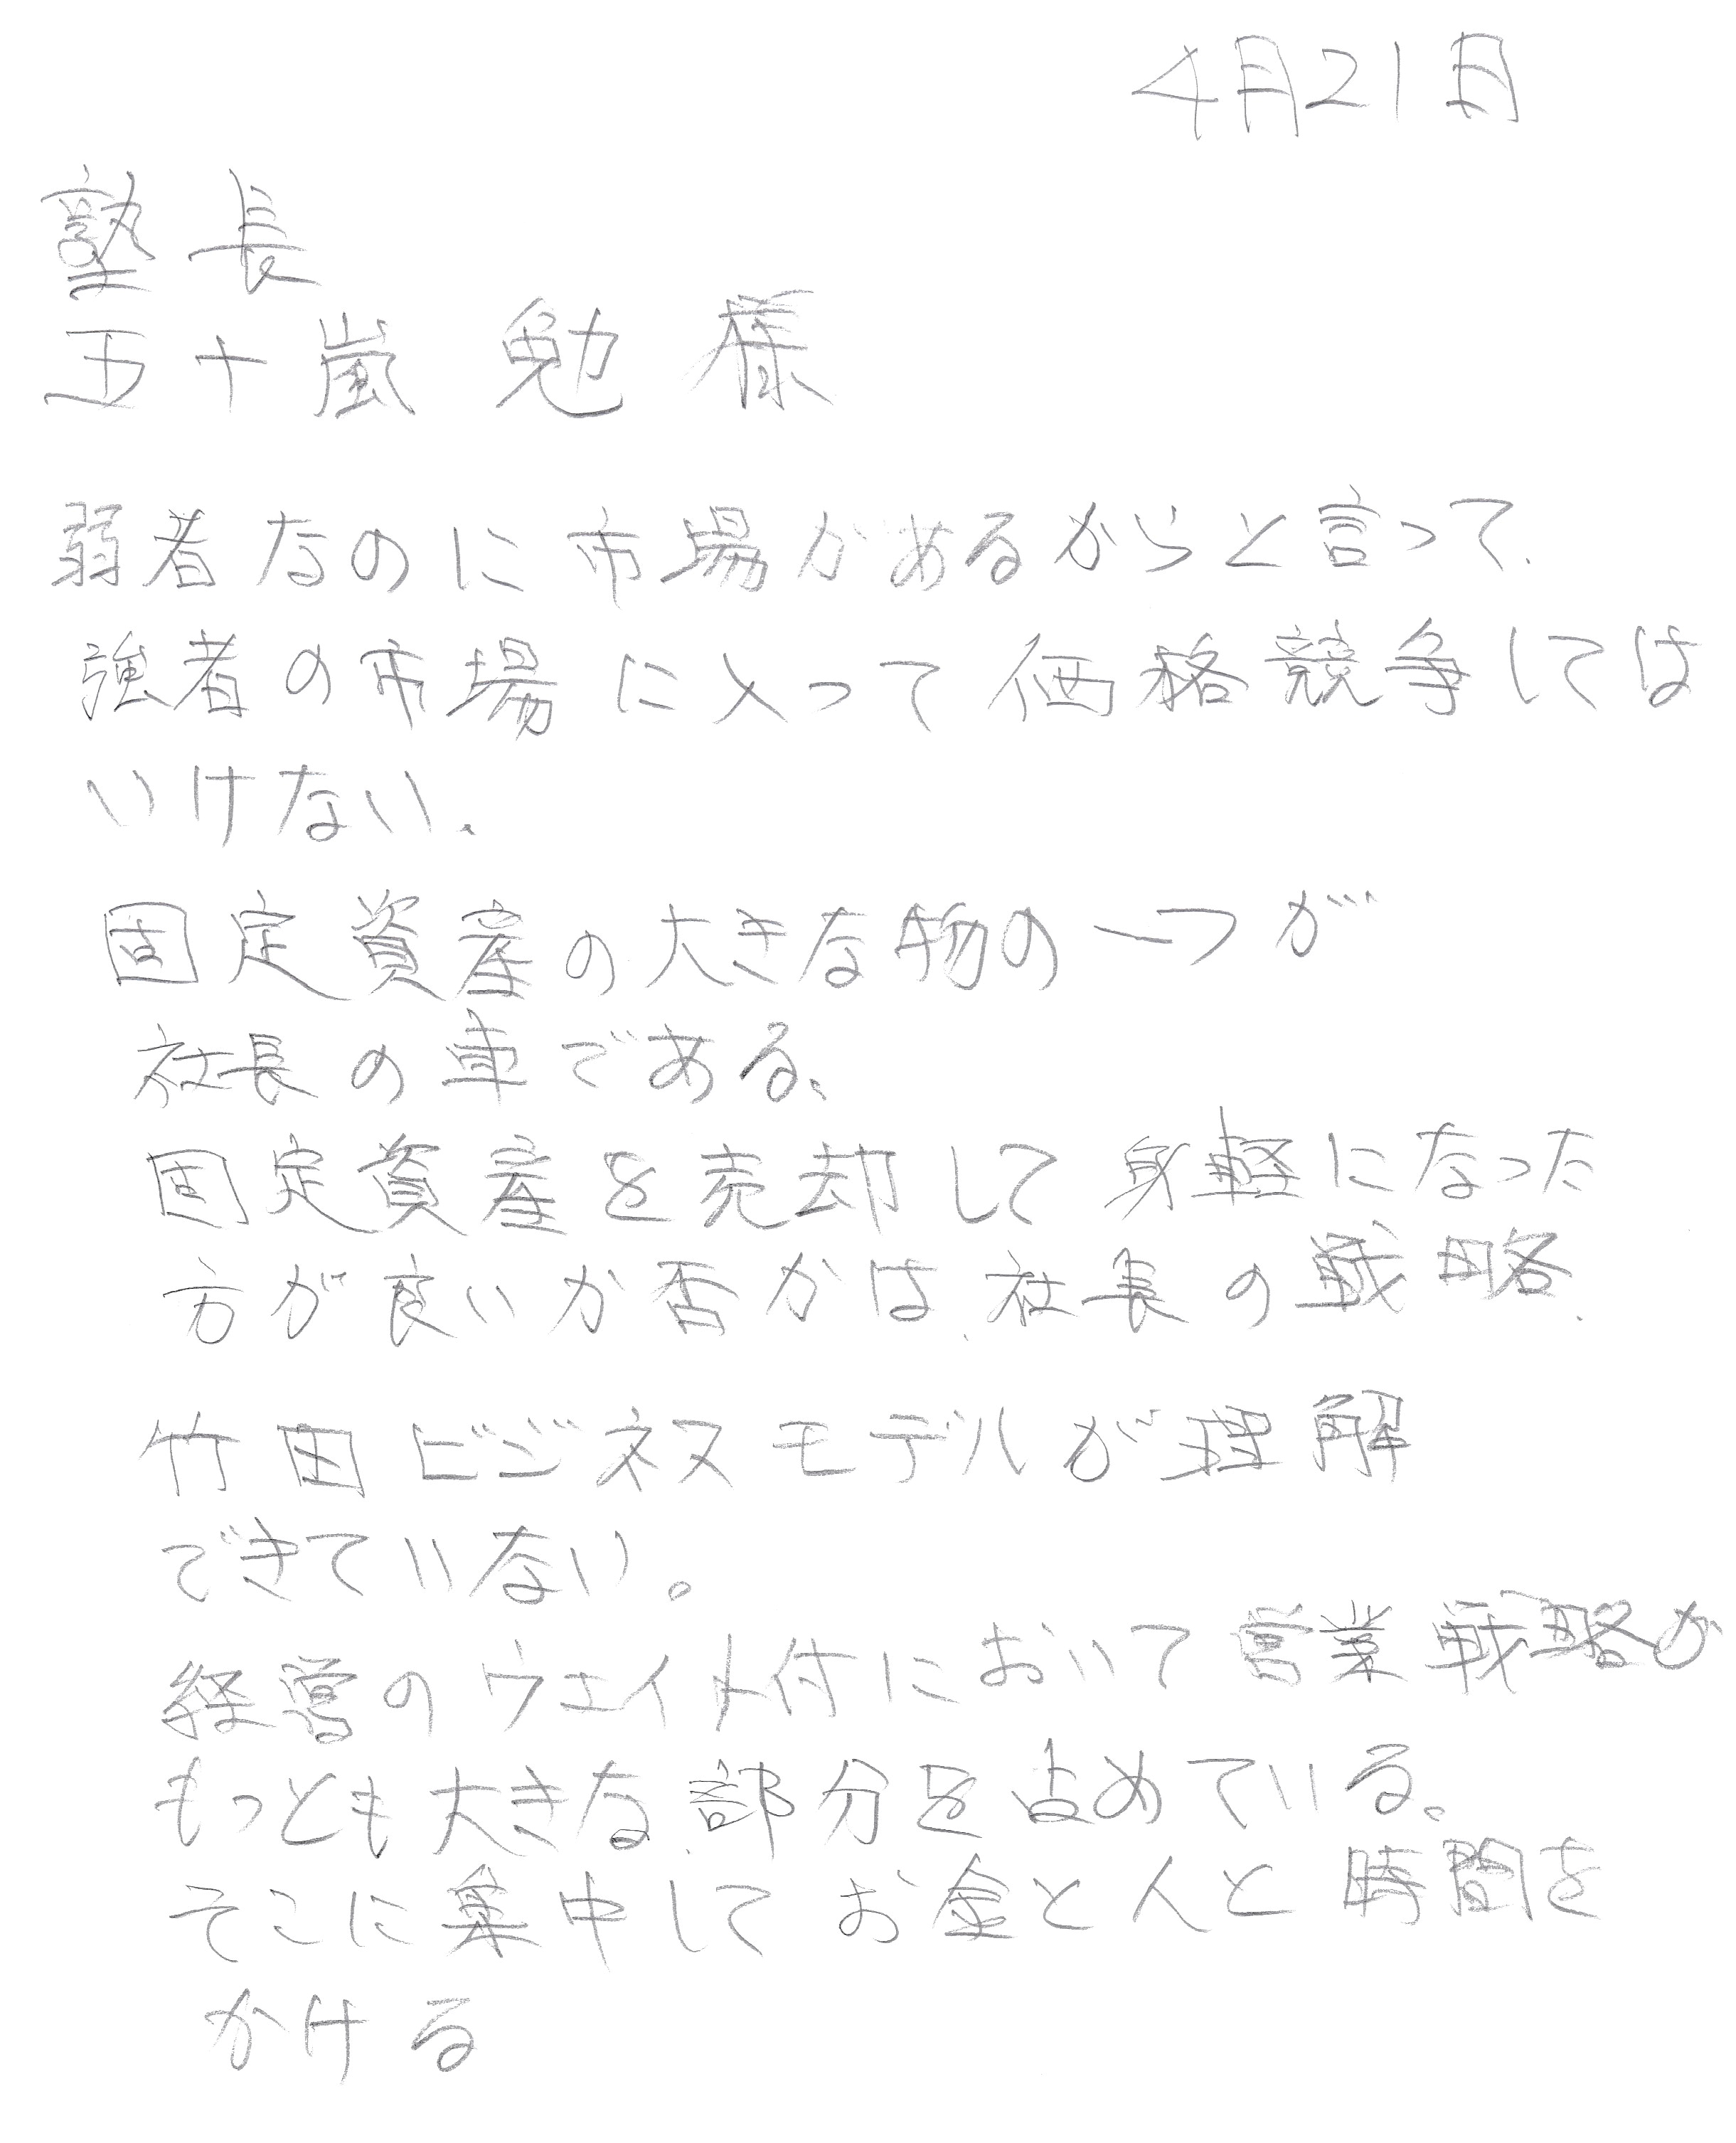 4月21日
塾長
五十嵐 勉 様
弱者なのに市場があるからと言って、
強者の市場に入って価格競争しては
いけない。
固定資産の大きな物の一つが
社長の車である。
固定資産を売却して身軽になった
方が良いか否かは、社長の戦略。
竹田ビジネスモデルが理解
できていない。
経営のウエイト付において営業戦略が
もっとも大きな部分を占めている。
そこに集中してお金と人と時間を
かける